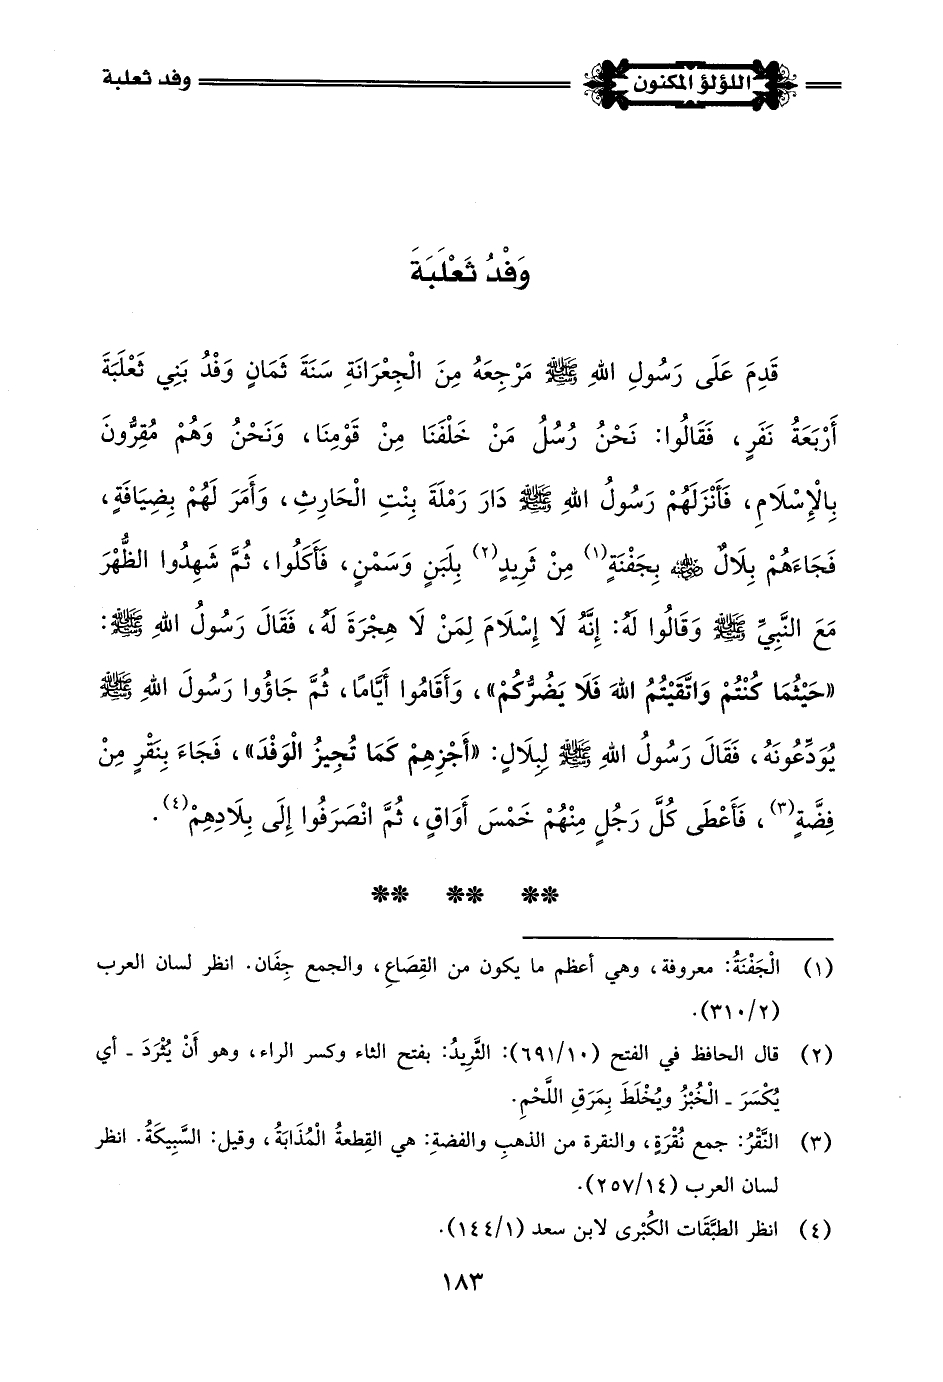 اللؤلؤ المكنون وفد ثعلبة
وَفْدُ ثَعْلَبَةَ
قَدِمَ عَلَى رَسُولِ اللهِ ﷺ مَرْجِعَهُ مِنَ الْجِعْرَانَةِ سَنَةَ ثَمَانٍ وَفْدُ بَنِي ثَعْلَبَةَ
أَرْبَعَةُ نَفَرٍ، فَقَالُوا: نَحْنُ رُسُلُ مَنْ خَلْفَنَا مِنْ قَوْمِنَا، وَنَحْنُ وَهُمْ مُقِرُّونَ
بِالْإِسْلَامِ، فَأَنْزَلَهُمْ رَسُولُ اللهِ ﷺ دَارَ رَمْلَةَ بِنْتِ الْحَارِثِ، وَأَمَرَ لَهُمْ بِضِيَافَةٍ،
فَجَاءَهُمْ بِلَالٌ رضي الله عنه بِجَفْنَةٍ(١) مِنْ ثَرِيدٍ(٢) بِلَبَنٍ وَسَمْنٍ، فَأَكَلُوا، ثُمَّ شَهِدُوا الظُّهْرَ
مَعَ النَّبِيِّ ﷺ وَقَالُوا لَهُ: إِنَّهُ لَا إِسْلَامَ لِمَنْ لَا هِجْرَةَ لَهُ، فَقَالَ رَسُولُ اللهِ ﷺ:
«حَيْثُمَا كُنْتُمْ وَاتَّقَيْتُمُ اللهَ فَلَا يَضُرُّكُمْ»، وَأَقَامُوا أَيَّامًا، ثُمَّ جَاؤُوا رَسُولَ اللهِ ﷺ
يُوَدِّعُونَهُ، فَقَالَ رَسُولُ اللهِ ﷺ لِبِلَالٍ: «أَجْزِهِمْ كَمَا تُجِيزُ الْوَفْدَ»، فَجَاءَ بِنَقْرٍ مِنْ
فِضَّةٍ(٣)، فَأَعْطَى كُلَّ رَجُلٍ مِنْهُمْ خَمْسَ أَوَاقٍ، ثُمَّ انْصَرَفُوا إِلَى بِلَادِهِمْ(٤).
** ** **
(١) الْجَفْنَةُ: معروفة، وهي أعظم ما يكون من القِصَاعِ، والجمع جِفَان. انظر لسان العرب
(٣١٠/٢).
(٢) قال الحافظ في الفتح (٦٩١/١٠): الثَّرِيدُ: بفتح الثاء وكسر الراء، وهو أَنْ يُثْرَدَ ـ أي
يُكْسَرَ ـ الْخُبْزُ ويُخْلَطَ بِمَرَقِ اللَّحْمِ.
(٣) النَّقْرُ: جمع نُقْرَةٍ، والنقرة من الذهبِ والفضةِ: هي القِطعةُ الْمُذَابَةُ، وقيل: السَّبِيكَةُ. انظر
لسان العرب (٢٥٧/١٤).
(٤) انظر الطبَّقَات الكُبْرى لابن سعد (١٤٤/١).
١٨٣